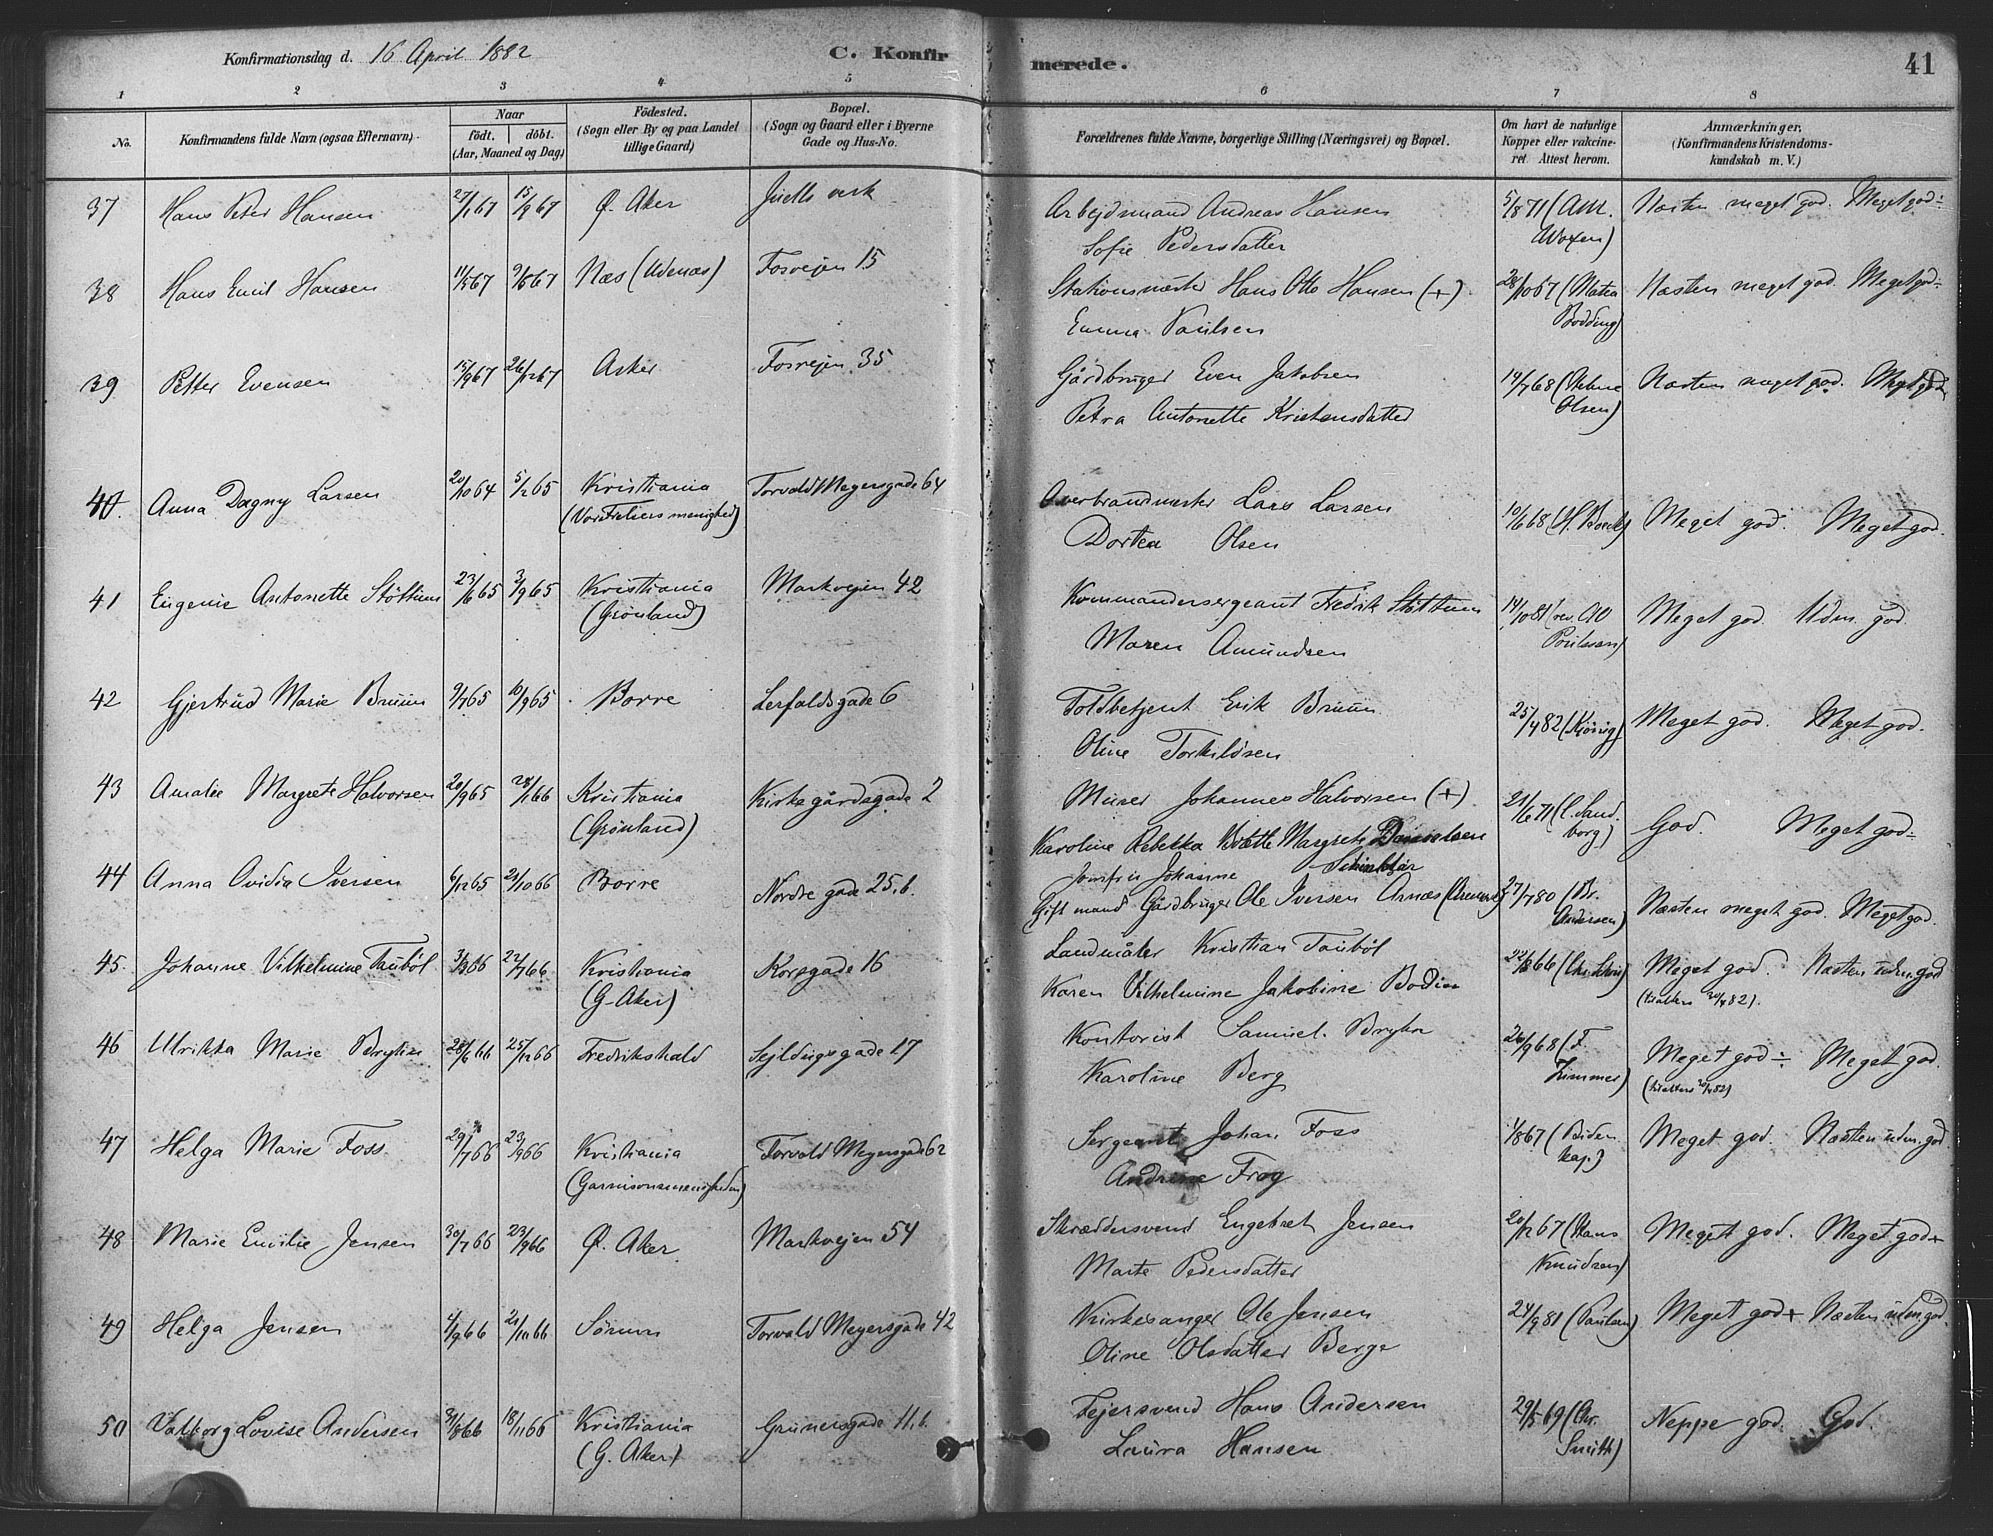 Konfirmationsdag d. 16 April 1882
C. Konfirmerede.
41
1 2 3 4 5 6 7 8
No.
Konfirmandens fulde Navn (ogsaa Efternavn).
Naar
födt. döbt.
(Aar, Maaned og Dag)
Födested.
(Sogn eller By og paa Landet
tillige Gaard)
Bopæl.
(Sogn og Gaard eller i Byerne
Gade og Hus-No.
Forældrenes fulde Navne, borgerlige Stilling (Næringsvei) og Bopæl.
Om havt de naturlige
Kopper eller vakcine-
ret Attest herom.
Anmærkninger,
(Konfirmandens Kristendoms-
kundskab m. V.)
37 Hans Peter Hansen 27/1 67 15/9 67 Ø. Aker Juells verk Arbejdsmand Andreas Hansen 5/8 71 (AM. Næsten meget god. Meget god÷
Sofie Pedersdatter Woxen)
38 Hans Emil Hansen Næs (Udenæs) Fosvejen 15 Stationsmester Hans Otto Hansen (+) 28/10 67 (Matea Næsten meget god. Meget god÷
Emma Paulsen Bødding)
39 Petter Evensen 15/9 67 26/12 67 Asker Fosvejen 35 Gårdbruger Even Jakobsen 14/7 68 Næsten meget god. Meget god
Petra Antonette Kristensdatter Olsen)
40. Anna Dagny Larsen 20/10 64 5/2 65 Kristiania Torvald Meyersgade 64 Overbrandmester Lars Larsen 10/6 68 (H. Boeck) Meget god. Meget god.
(Vor Frelsers menighed) Dortea Olsen
41 Eugenie Antonette Støttum 23/6 65 3/9 65 Kristiania Markvejen 42 Kommandersergeant Fredrik Støttum 14/10 81 (rev. AO Meget god. Udm. god.
(Grønland) Maren Amundsen Poulsson)
42 Gjertrud Marie Bruun 9/7 65 10/9 65 Borre Lerfaldsgade 6 Toldbetjent Erik Bruun 25/4 82 (Kjønig) Meget god. Meget god.
Oline Torkilsen
43 Amalie Margrete Halvorsen 20/9 65 28/1 66 Kristiania Kirkegårdsgade 2 Murer Johannes Halvorsen (+) 21/6 71 (C. Sand- God. Meget god÷
(Grønland) Karoline Rebekka borg)
44 Anna Ovidia Iversen 6/12 65 21/10 66 Borre Nordre gade 25,b. Jomfru Johanne Margrete
Gift mand Gårdbruger Ole Iversen Arnæs 27/7 80 (Br. Næsten meget god. Meget god.
Andersen)
45. Johanne Vilhelmine Taubøl 3/3 66 22/7 66 Kristiania Korsgade 16 Landmåler Kristian Taubøl 22/8 66 Meget god. Næsten udm. god
(G. Aker) Karen Vilhelmine Jakobine Bodin
46 Ulrikka Marie Bryhn 28/6 66 25/12 66 Fredrikshald Sejldugsgade 17 Kontorist Samuel Bryhn 26/9 68 (F. Meget god÷ Meget god.
Karoline Berg Zimmer)
47 Helga Marie Foss 29/7 66 23/9 66 Kristiania Torvald Meyersgade 62 Sergeant Johan Foss 1/8 67 (Biden- Meget god. Næsten udm. god
(Garnisonsmenigheden) Andrene Frog kap.)
48 Marie Emilie Jensen 30/7 66 23/9 66 Ø. Aker Markvejen 54 Skræddersvend Engebret Jensen 20/12 67 (Hans Meget god. Meget god+
Marte Pedersdatter Knudsen)
49 Helga Jensen 4/9 66 21/10 66 Sørum Torvald Meyersgade 42 Kirkesanger Ole Jensen 24/9 81 (Paulsen) Meget god+ Næsten udm. god.
Oline Olsdatter Berge
50 Valborg Lovise Andersen 31/8 66 18/11 66 Kristiania Grünersgade 11,b. Fejersvend Hans Andersen 29/5 69 (Chr. Neppe god. God.
(G. Aker) Laura Hansen Smith)